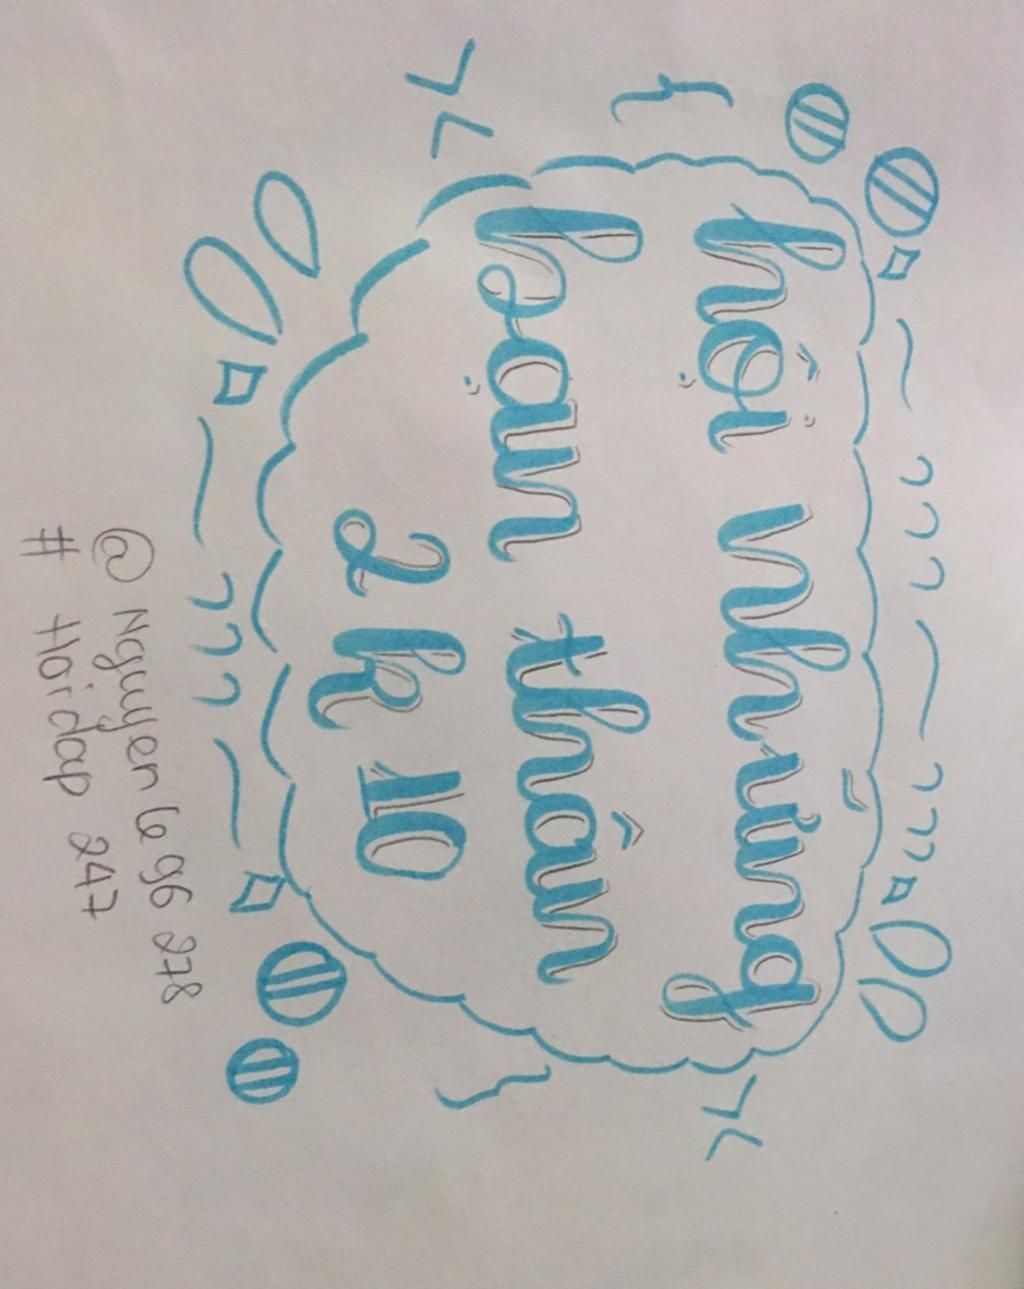 hội những
bạn thân
2k10
@ Nguyen le 96 278
# Hoidap 247